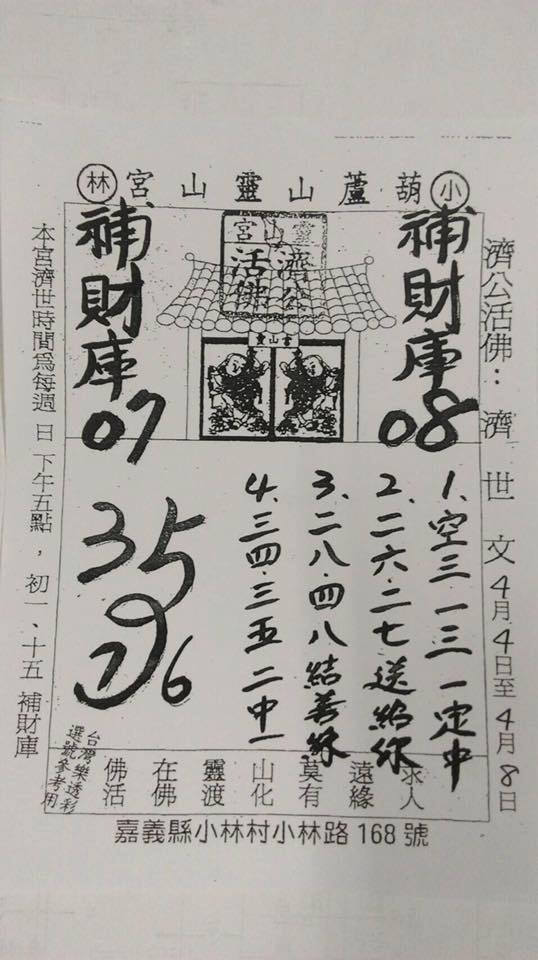 小 葫蘆山靈山宮 林
濟公活佛：濟世文4月4日至4月8日
補財庫08
靈山宮
濟公
活佛
補財庫07
1、空三一三一定中
2、二六.二七送給你
3、二八.四八結善緣
4、三四.三五二中一
35
6
求人
遠緣
莫有
山化
靈渡
在佛
佛活
台灣樂透彩
選號參考用
本宮濟世時間為每週日下午五點，初一、十五補財庫
嘉義縣小林村小林路168號